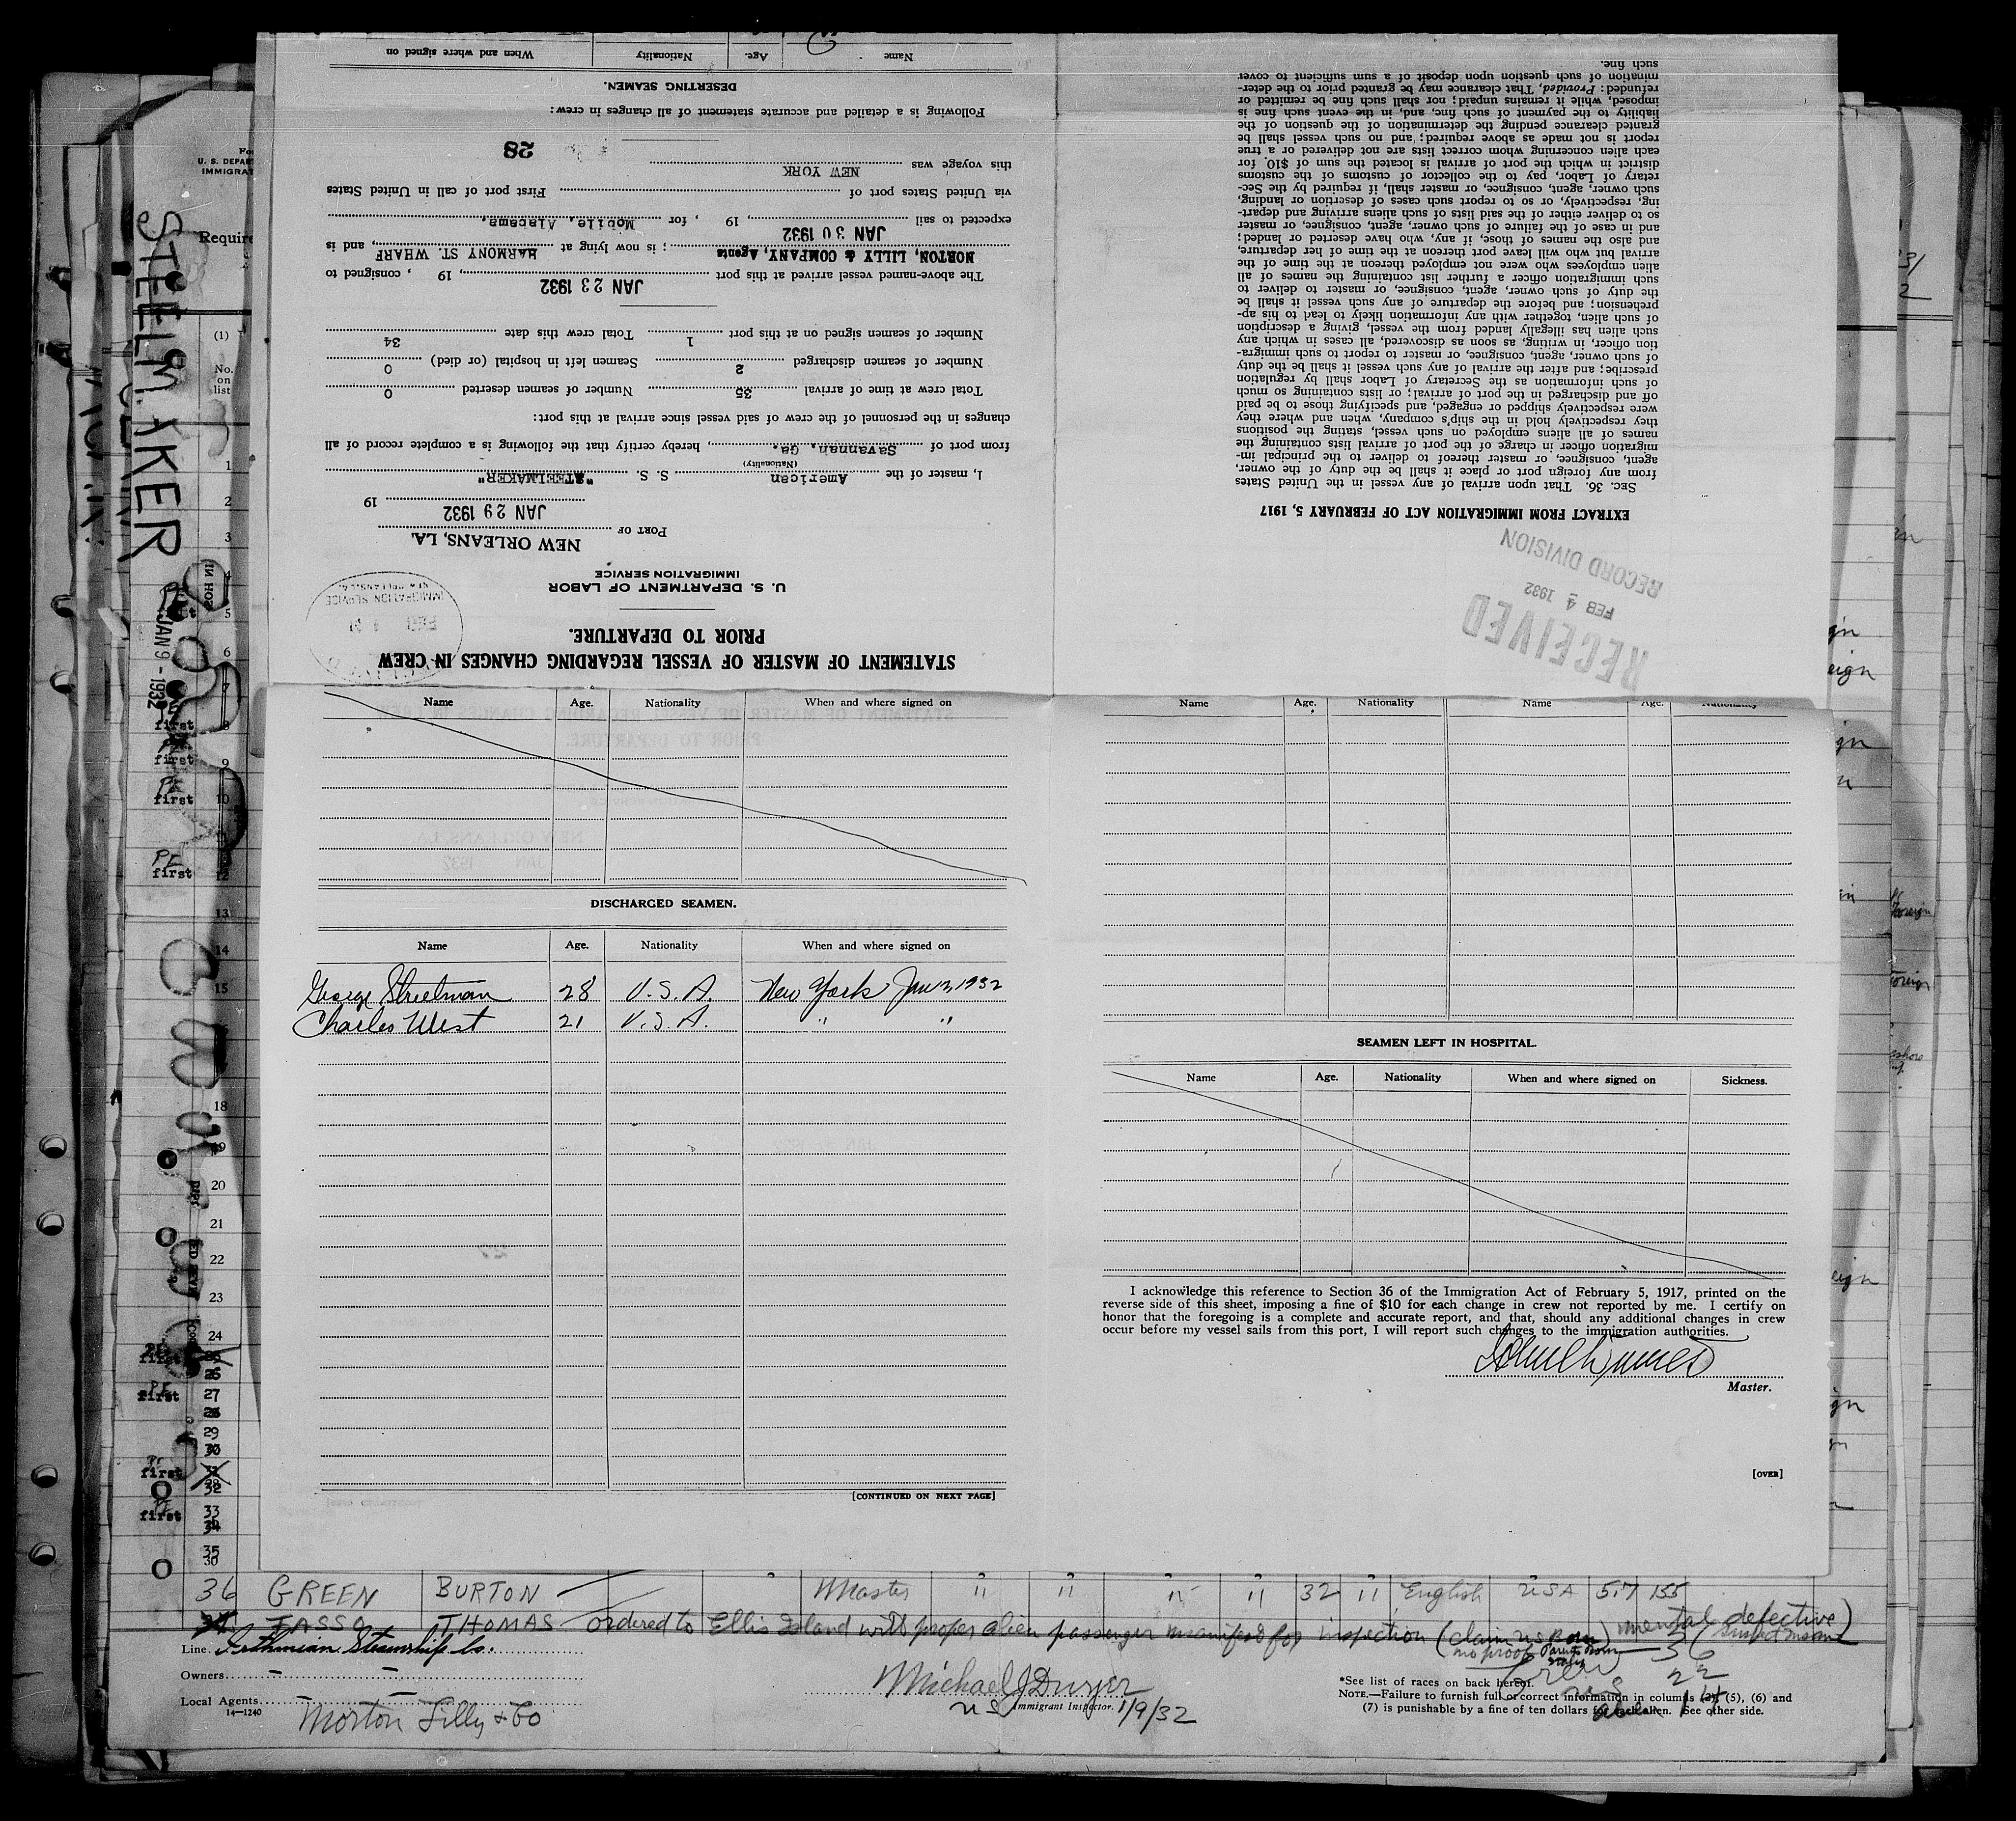 STATEMENT OF MASTER OF VESSEL REGARDING CHANGES IN CREW
PRIOR TO DEPARTURE.
U. S. DEPARTMENT OF LABOR
IMMIGRATION SERVICE
NEW ORLEANS, LA.
PORT OF
JAN 29 1932
19
I, master of the American S. S. "STEELMAKER"
(Nationality)
from port of Savannah, Ga., hereby certify that the following is a complete record of all
changes in the personnel of the crew of said vessel since arrival at this port:
Total crew at time of arrival 35 Number of seamen deserted 0
Number of seamen discharged 2 Seamen left in hospital (or died) 0
Number of seamen signed on at this port 1 Total crew this date 34
JAN 23 1932
The above-named vessel arrived at this port , 19 , consigned to
NORTON, LILLY & COMPANY, Agents ; is now lying at HARMONY ST. WHARF, and is
JAN 30 1932
expected to sail , 19 , for Mobile, Alabama,
via United States port of First port of call in United States
this voyage was NEW YORK
28
Following is a detailed and accurate statement of all changes in crew:
DESERTING SEAMEN.
Name Age. Nationality When and where signed on
RECEIVED
FEB 4 1932
RECORD DIVISION
EXTRACT FROM IMMIGRATION ACT OF FEBRUARY 5, 1917
SEC. 36. That upon arrival of any vessel in the United States
from any foreign port or place it shall be the duty of the owner,
agent, consignee, or master thereof to deliver to the principal im-
migration officer in charge of the port of arrival lists containing the
names of all aliens employed on such vessel, stating the positions
they respectively hold in the ship's company, when and where they
were respectively shipped or engaged, and specifying those to be paid
off and discharged in the port of arrival; or lists containing so much
of such information as the Secretary of Labor shall by regulation
prescribe; and after the arrival of any such vessel it shall be the duty
of such owner, agent, consignee, or master to report to such immigra-
tion officer, in writing, as soon as discovered, all cases in which any
such alien has illegally landed from the vessel, giving a description
of such alien, together with any information likely to lead to his ap-
prehension; and before the departure of any such vessel it shall be
the duty of such owner, agent, consignee, or master to deliver to
such immigration officer a further list containing the names of all
alien employees who were not employed thereon at the time of the
arrival but who will leave port thereon at the time of her departure,
and also the names of those, if any, who have deserted or landed;
and in case of the failure of such owner, agent, consignee, or master
so to deliver either of the said lists of such aliens arriving and depart-
ing, respectively, or so to report such cases of desertion or landing,
such owner, agent, consignee, or master shall, if required by the Sec-
retary of Labor, pay to the collector of customs of the customs
district in which the port of arrival is located the sum of $10. for
each alien concerning whom correct lists are not delivered or a true
report is not made as above required; and no such vessel shall be
granted clearance pending the determination of the question of the
liability to the payment of such fine, and, in the event such fine is
imposed, while it remains unpaid; nor shall such fine be remitted or
refunded: Provided, That clearance may be granted prior to the deter-
mination of such question upon deposit of a sum sufficient to cover
such fine.
Name Age. Nationality When and where signed on
DISCHARGED SEAMEN.
Name Age. Nationality When and where signed on
George Streetman 28 U.S.A. New York Jan 2, 1932
Charles West 21 U.S.A. " "
[CONTINUED ON NEXT PAGE]
Name Age. Nationality Name Age. Nationality
SEAMEN LEFT IN HOSPITAL.
Name Age. Nationality When and where signed on Sickness.
I acknowledge this reference to Section 36 of the Immigration Act of February 5, 1917, printed on the
reverse side of this sheet, imposing a fine of $10 for each change in crew not reported by me. I certify on
honor that the foregoing is a complete and accurate report, and that, should any additional changes in crew
occur before my vessel sails from this port, I will report such changes to the immigration authorities.
Master.
[OVER]
STEELMAKER
JAN 9 - 1932
Require
(1)
No.
on
list
36 GREEN BURTON Master " " " " 32 " English USA 5.7 155
TASSO THOMAS ordered to Ellis Island with proper alien passenger manifest for inspection (claim us Born) mental defective)
no proof Parents Born
Line. Isthmian Steamship Co.
Owners
Local Agents Norton Lilly & Co
14-1240
Michael J Dwyer
US Immigrant Inspector. 1/9/32
*See list of races on back hereof.
NOTE.—Failure to furnish full or correct information in columns (3), (5), (6) and
(7) is punishable by a fine of ten dollars for each alien. See other side.